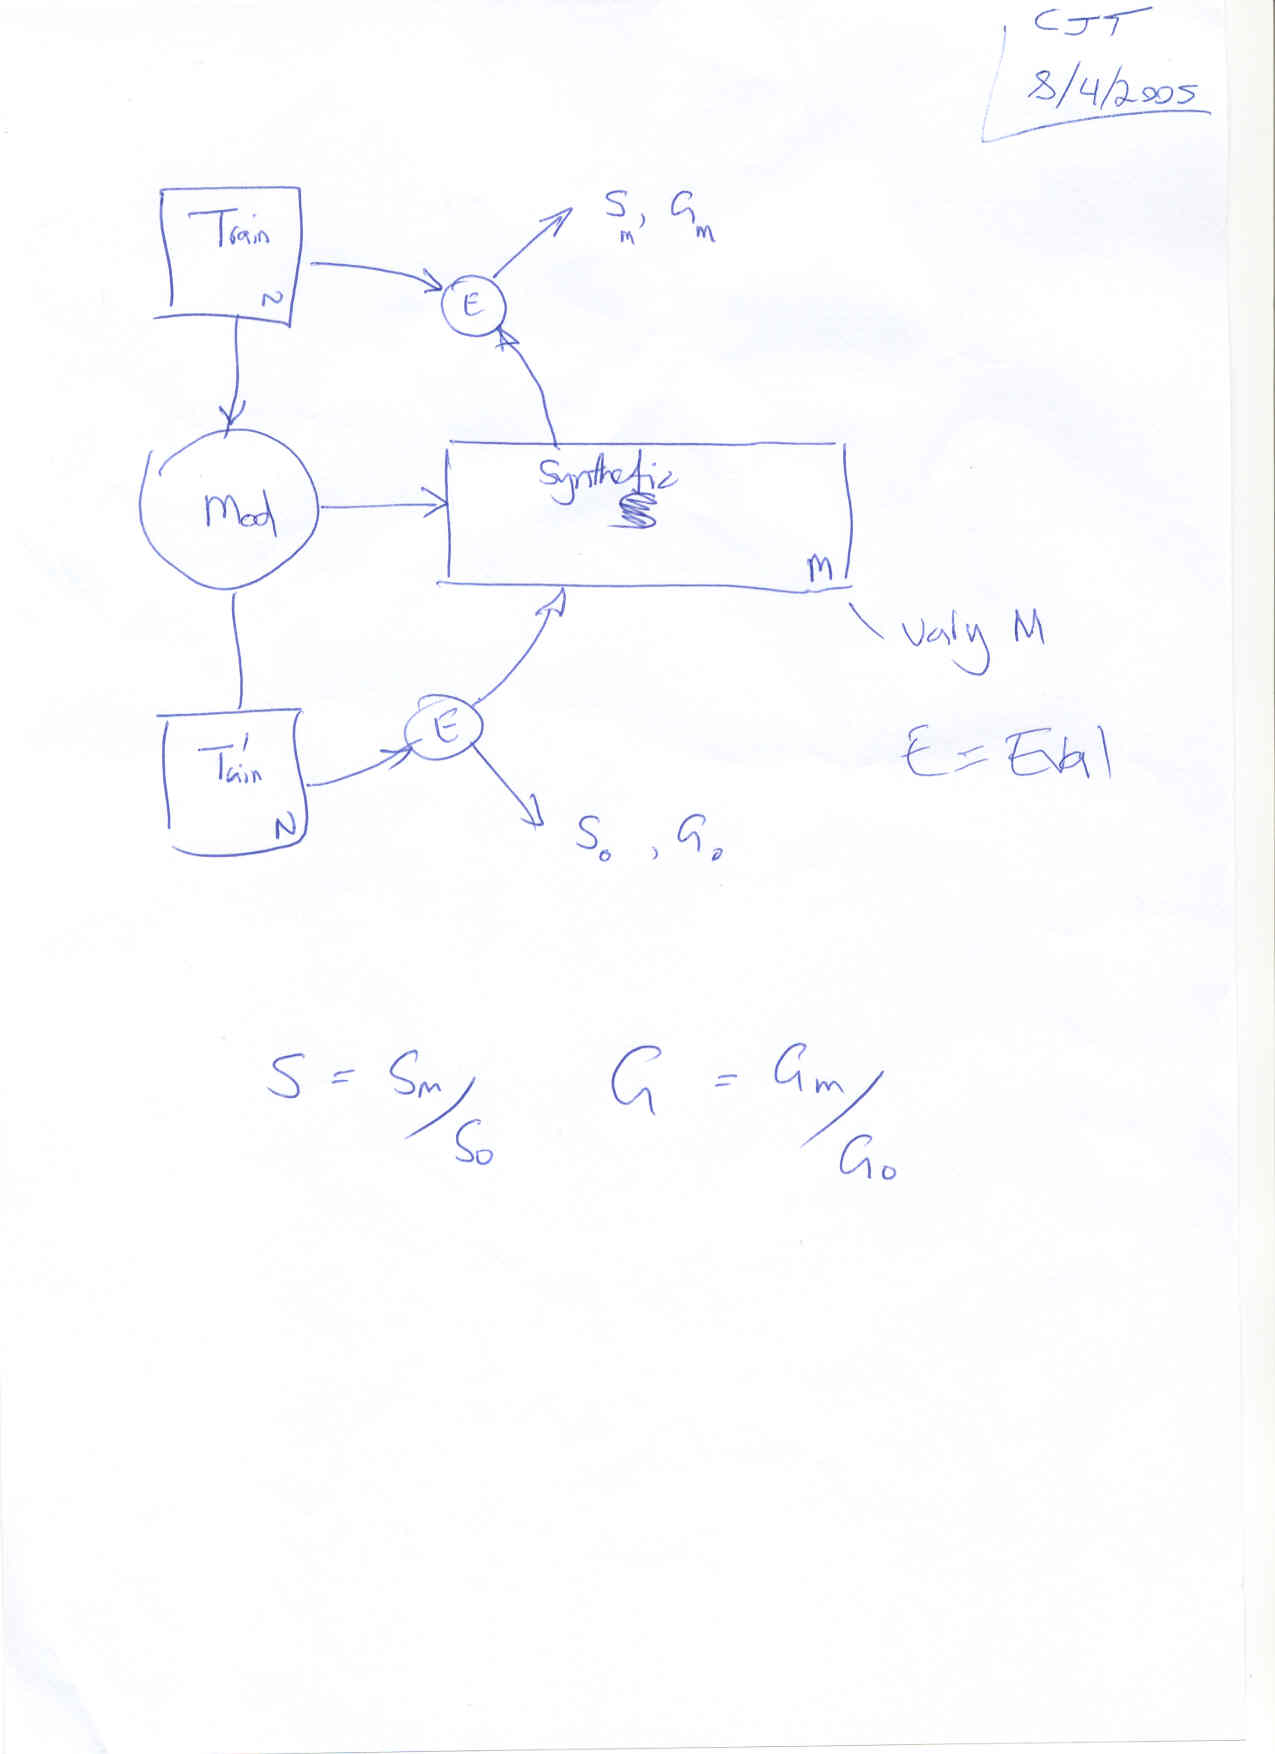 CJT
8/4/2005
Train
N
E
Sm, Gm
Mod
Synthetic
M
Vary M
E = Eval
Train'
N
E
So, Go
S = Sm/So
G = Gm/Go